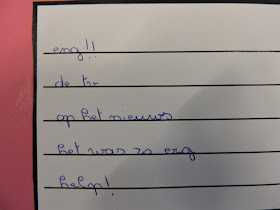 eng!!
de tv
op het nieuws
het was zo erg
help!